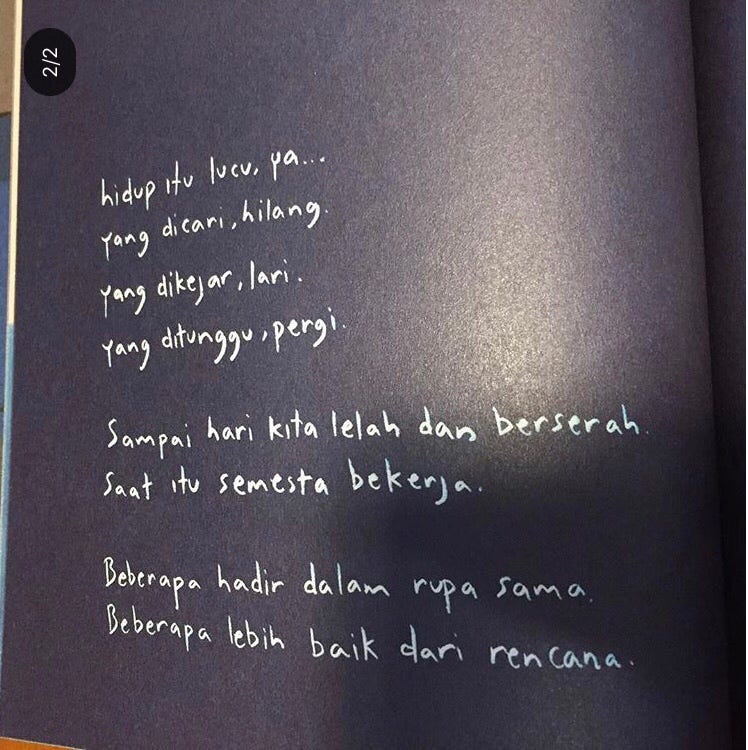 2/2
hidup itu lucu, ya...
yang dicari, hilang.
yang dikejar, lari.
yang ditunggu, pergi.
Sampai hari kita lelah dan berserah.
Saat itu semesta bekerja.
Beberapa hadir dalam rupa sama.
Beberapa lebih baik dari rencana.